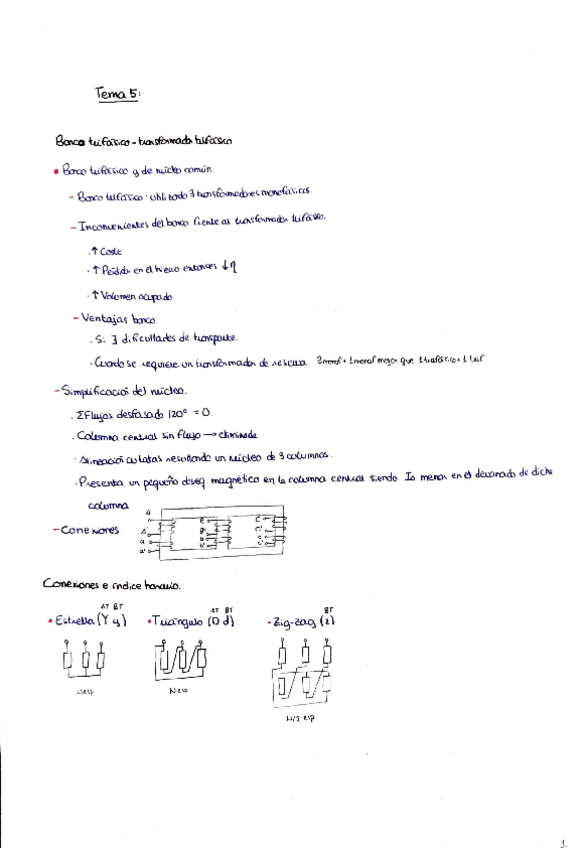 Tema 5:
Banco trifásico - transformador trifásico
• Banco trifásico y de núcleo común.
- Banco trifásico: utilizando 3 transformadores monofásicos.
- Inconvenientes del banco frente al transformador trifásico.
. ↑ Coste
. ↑ Pérdidas en el hierro entonces ↓ η
. ↑ Volumen ocupado
- Ventajas banco
. Si ∃ dificultades de transporte.
. Cuando se requiere un transformador de reserva. 3 monof + 1 monof mejor que 1 trifásico + 1 trif
- Simplificación del núcleo.
. ΣFlujos desfasado 120° = 0.
. Columna central sin flujo → eliminada
. Alineación culatas resultando un núcleo de 3 columnas.
. Presenta un pequeño deseq magnético en la columna central siendo Io menor en el devanado de dicha
columna
- Conexiones
A A' a a' B C C' c c'
Conexiones e índice horario.
AT BT AT BT BT
• Estrella (Y y) • Triángulo (D d) • Zig-zag (z)
N esp N esp
N/2 esp
1.